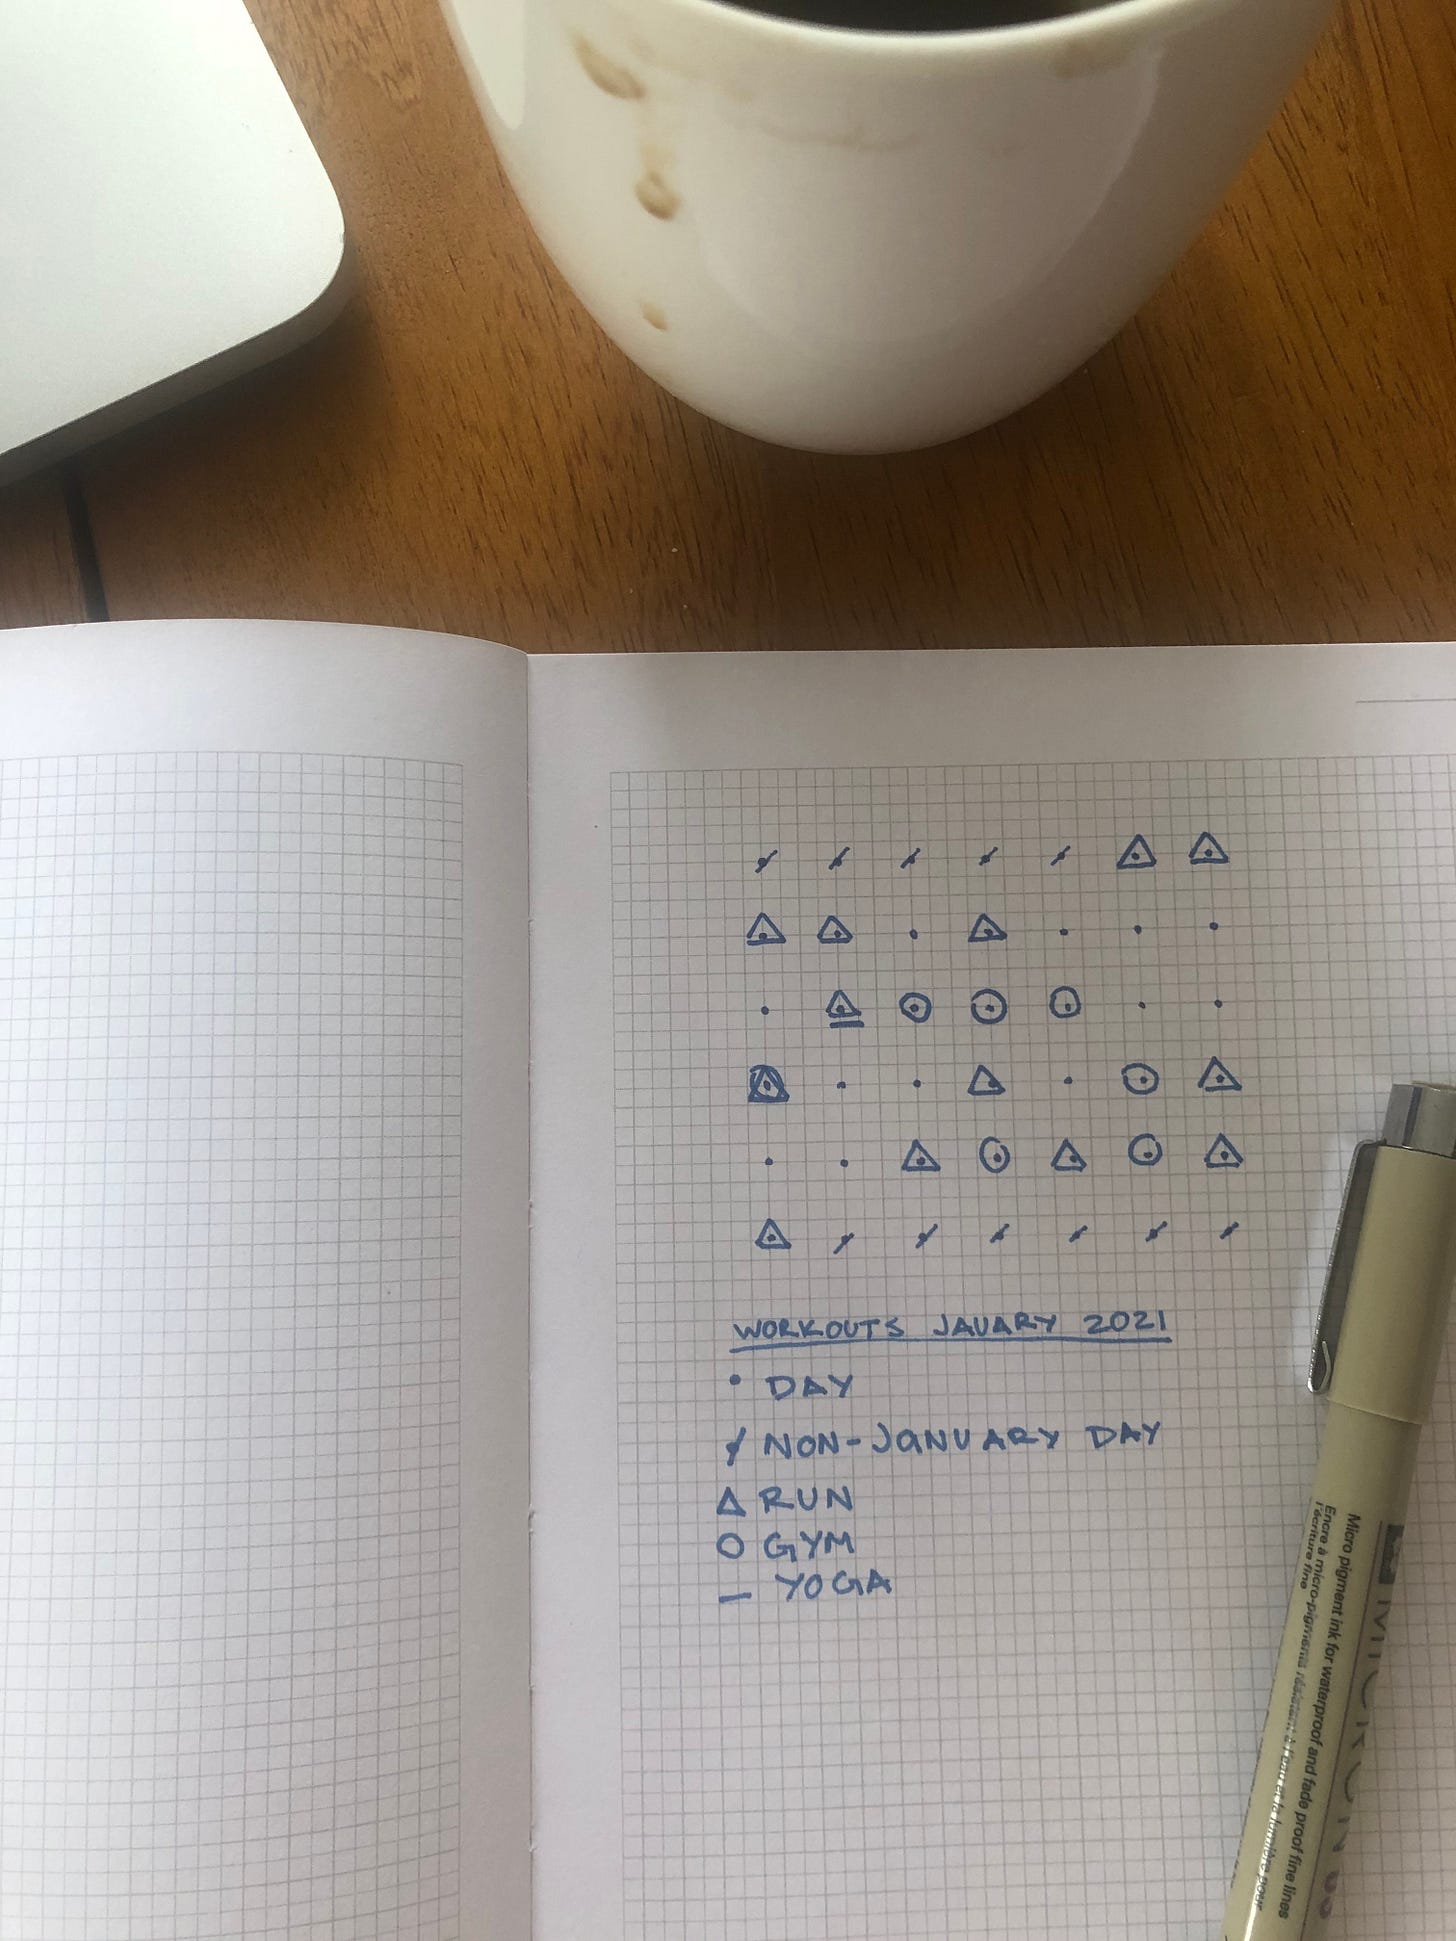 WORKOUTS JAUARY 2021
DAY
NON-JANUARY DAY
RUN
GYM
YOGA
Micro pigment ink for waterproof and fade proof fine lines
Encre à micro-pigments résistant à l'eau et à la lumière pour
l'écriture fine
MICRON